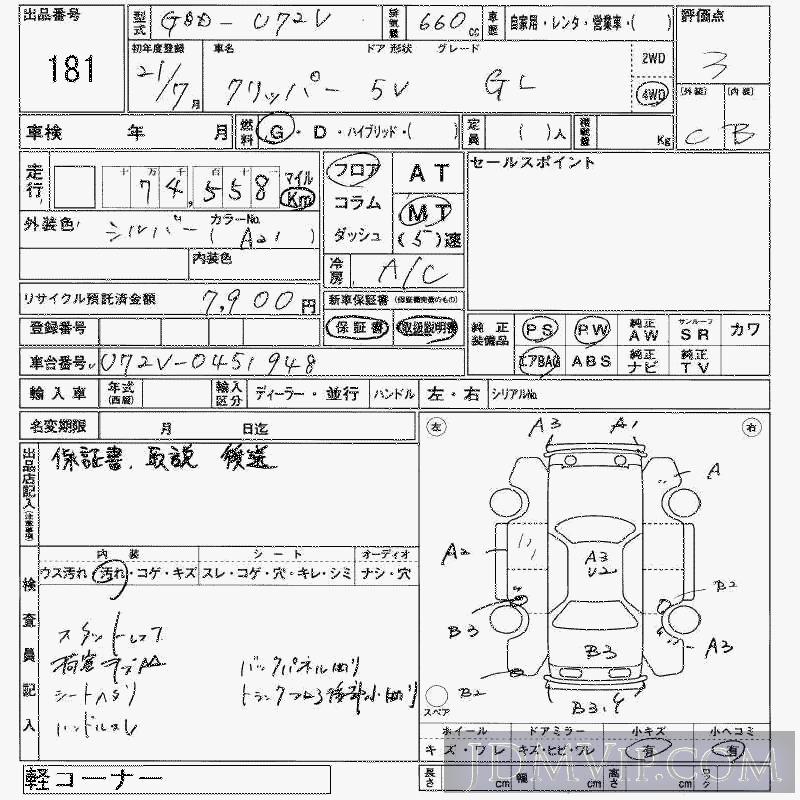 出品番号
181
型式 GBD-U72V 排気量 660cc 車歴 自家用・レンタ・営業車・( )
評価点
3
初年度登録 車名 ドア形状 グレード
21/7月 クリッパー 5V GL
2WD
4WD
(外装) (内装)
C B
車検 年 月 燃料 G・D・ハイブリッド・( ) 定員 ( )人 積載量 Kg
走行 十 万 千 百 十
74,558 マイル Km
フロア
コラム
ダッシュ
AT
MT
(5)速
セールスポイント
外装色 シルバー カラーNo. (A21)
内装色
冷房 A/C
リサイクル預託済金額 7,900円
新車保証書 (保証継続のもの)
登録番号
保証書 取扱説明書
純正装備品 PS PW 純正AW サンルーフSR カワ
エアBAG ABS 純正ナビ 純正TV
車台番号 U72V-0451948
輸入車 年式(西暦) 輸入区分 ディーラー・並行 ハンドル 左・右 シリアルNo.
名変期限 月 日迄
左 右
A3 A1
出品店記入(注意事項)
保証書、取説 後送
A
A2
A3
V2
B2
B3
A3
B3
B2
B3,Y
スペア
内装 シート オーディオ
ウス汚れ・汚れ・コゲ・キズ スレ・コゲ・穴・キレ・シミ ナシ・穴
検査員記入
スタットレス
シートハダリ
ハンドルスレ
バックパネル曲り
ホイール ドアミラー 小キズ 小ヘコミ
キズ・ワレ キズ・ヒビ・ワレ 有 有
軽コーナー
長さ cm 幅 cm 高さ cm ロック
JDMVIP.COM